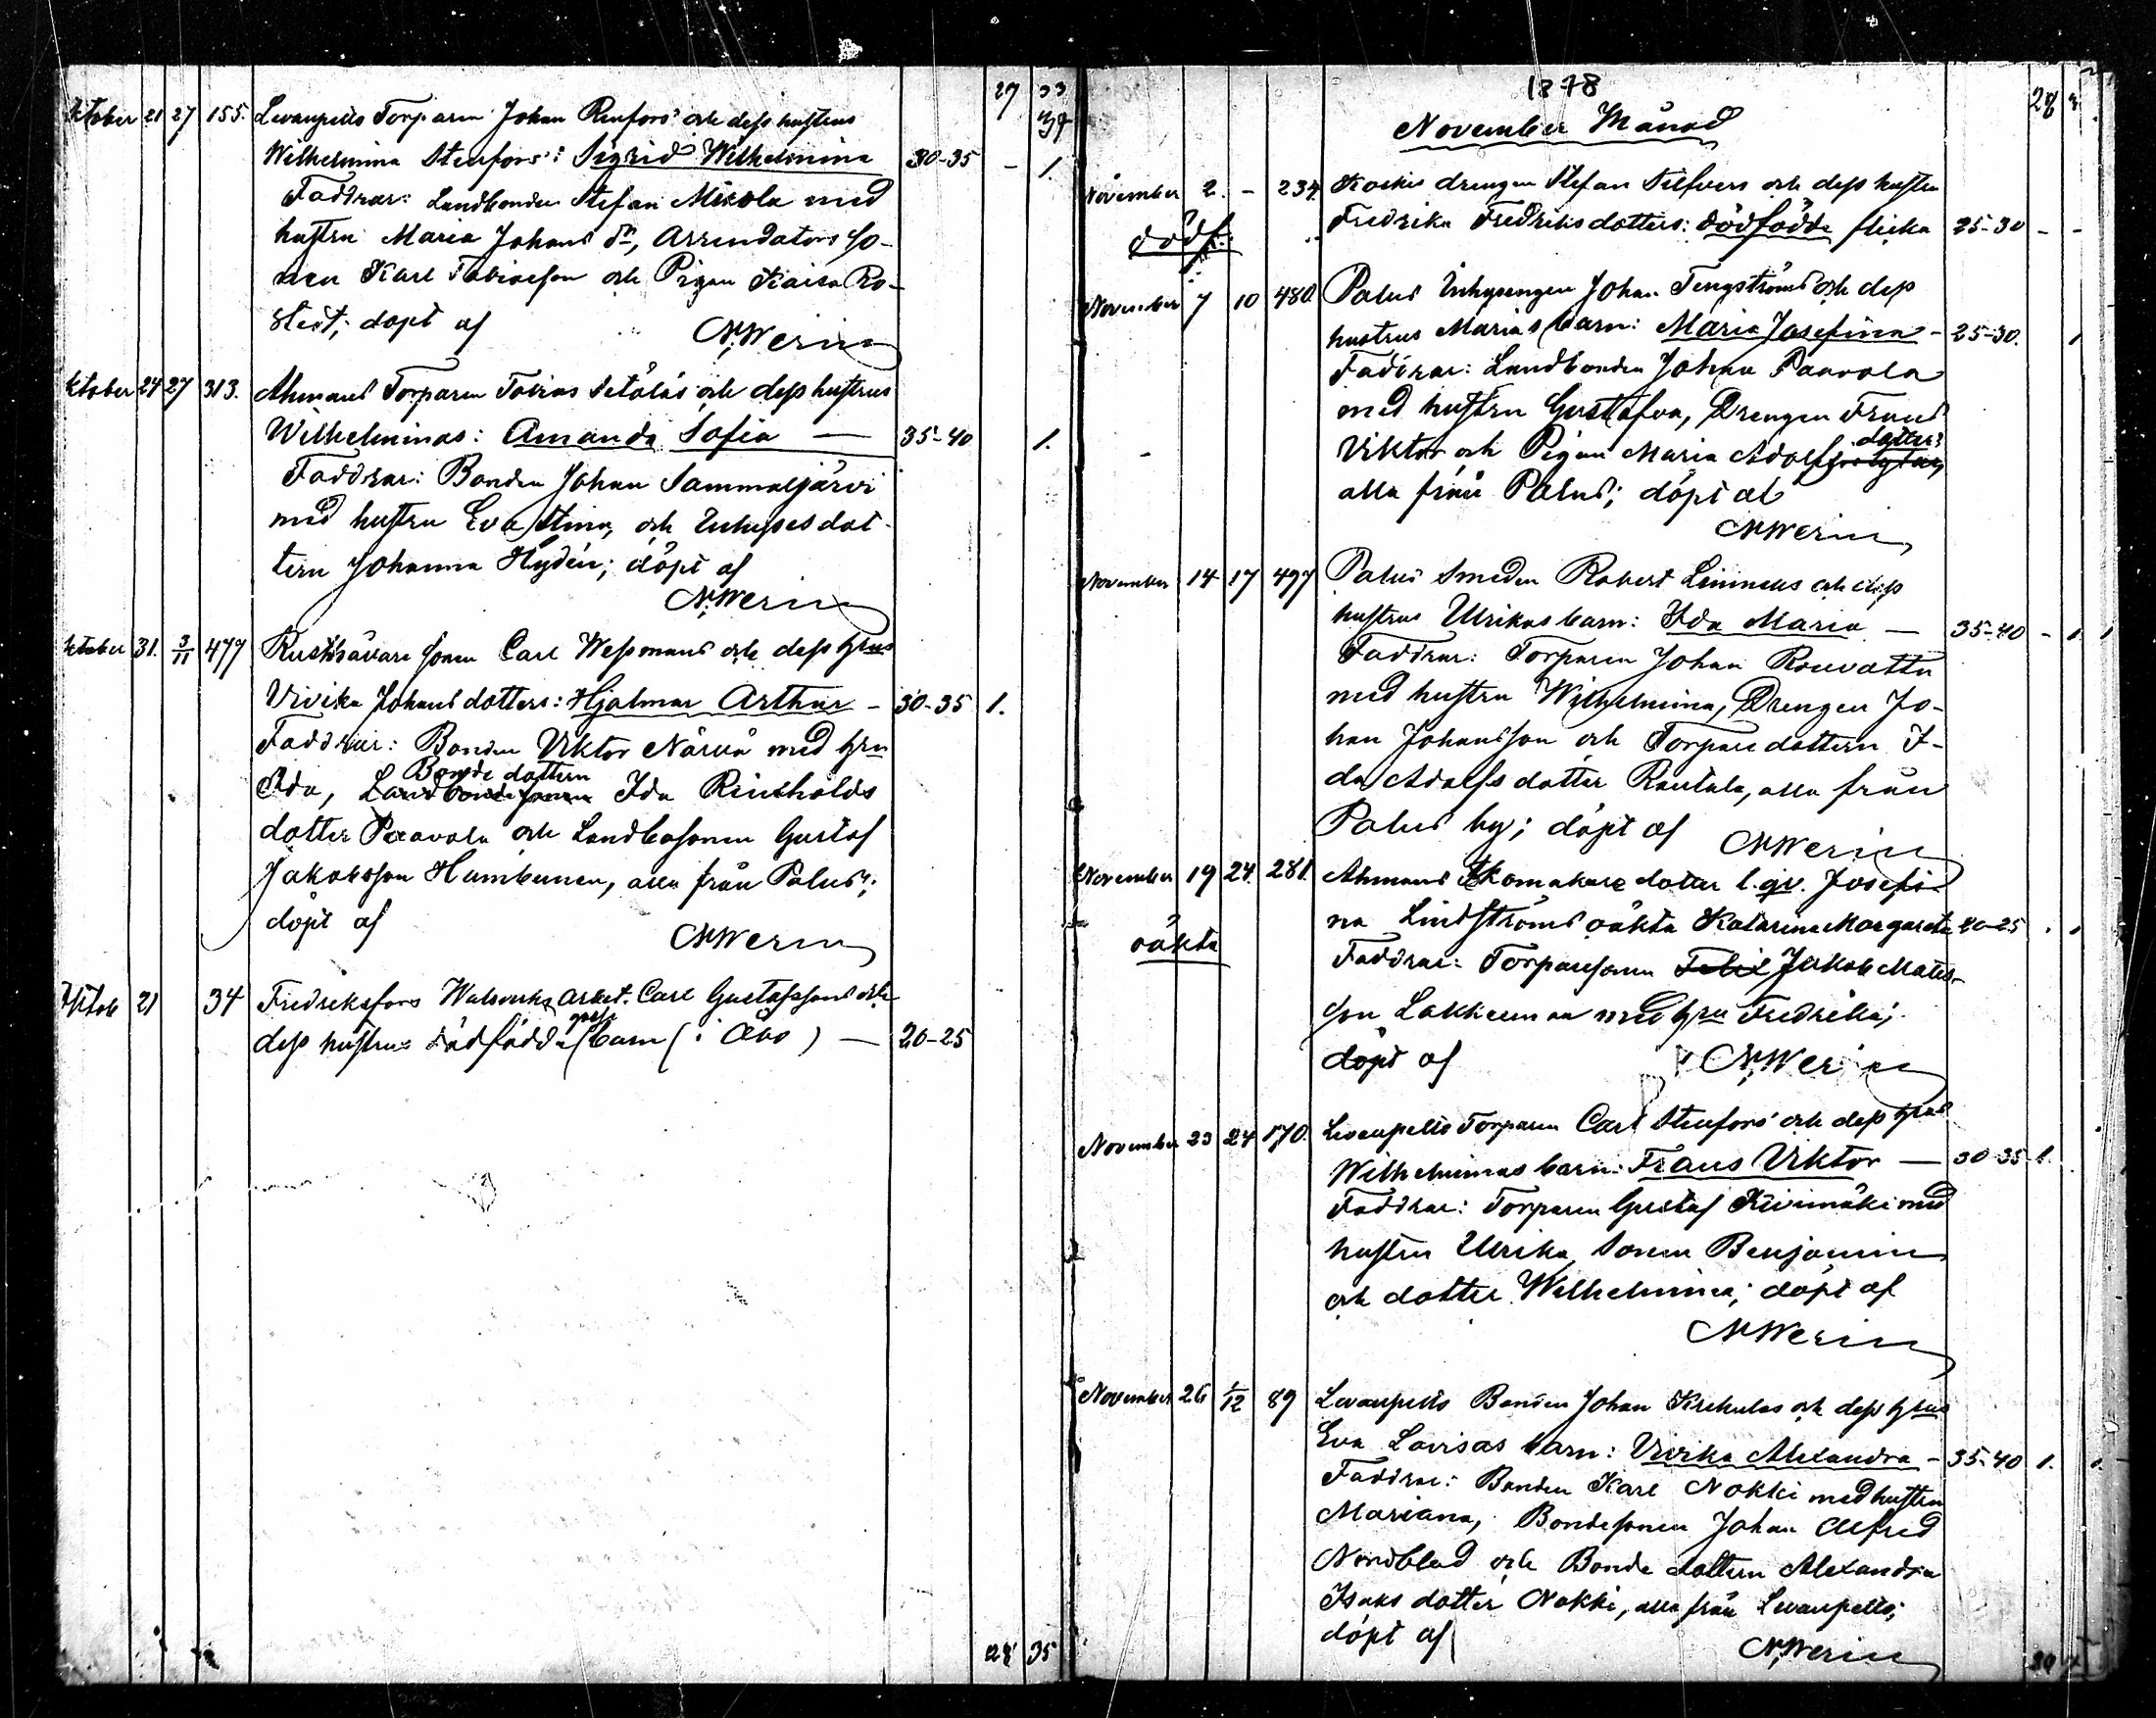 27 33
ktober 21 27 155. Levanpelto Torparen Johan Renfors och dess hustrus
Wilhelmina Stenfors: Sigrid Wilhelmina 30-35 - 1.
Faddrar: Landbonden Stefan Mikola med
hustru Maria Johans dr, Arrendators so-
nen Karl Tobiasson och Pigan Kaisa Ro-
stedt; döpt af N. Werin
ktober 24 27 313. Ahmaus Torparen Tobias Setäläs och dess hustrus
Wilhelminas: Amanda Sofia — 35-40 1.
Faddrar: Bonden Johan Sammaljärvi
med hustru Eva Stina, och Inhyses dot-
tern Johanna Hydén; döpt af
N. Werin
ktober 31. 3/11 477 Rusthållare sonen Carl Wessmans och dess hrus
Vivika Johansdotters: Hjalmar Arthur - 30-35 1.
Faddrar: Bonden Viktor Närvä med hru
Bonde dottern
Ida, Landbondesonen Ida Reinholds
dotter Paavola och Landbosonen Gustaf
Jakobsson Humbunen, alla från Palus;
döpt af
N. Werin
Oktob 21 34 Fredriksfors Walsverks arbet. Carl Gustafssons och
gosse
dess hustrus dödfödda barn (i Åbo) — 20-25
28 35
1878
28
November Månad
November 2. - 234. Koskis drengen Stefan Silfvers och dess hustru
dödf. Fredrika Fredriksdotters: dödfödde flicka 25-30 - -
November 7 10 480. Palus Inhysingen Johan Tengströms och dess
hustrus Marias barn: Maria Josefina - 25-30. 1
Faddrar: Landbonden Johan Paavola
med hustru Gustafva, Drengen Frans
dotter
Viktor och Pigan Maria Adolfs
alla från Palus; döpt af
N. Werin
November 14 17 497 Palus Smeden Robert Linneus och dess
hustrus Ulrikas barn: Ida Maria — 35-40 - 1. 1
Faddrar: Torparen Johan Rouvattu
med hustru Wilhelmina, Drengen Jo-
han Johansson och Torparedottern I-
da Adolfs dotter Rautala, alla från
Palus by; döpt af N. Werin
November 19 24. 281. Ahmaus Skomakare dotter l. qv. Josefi-
na Lindströms oäkta Katarina Margareta 20-25 . 1
oäkta
Faddrar: Torparesonen Felix Jakob Mats-
son Lakkeenmaa med hru Fredrika;
döpt af N. Werin
November 23 24 170. Levanpelto Torparen Carl Stenfors och dess hrus
Wilhelminas barn: Frans Viktor — 30-35 1.
Faddrar: Torparen Gustaf Kivimäki med
hustru Ulrika, Sonen Benjamin
och dotter Wilhelmina; döpt af
N. Werin
November 26 1/12 89 Levanpelto Bonden Johan Krekulas och dess hrus
Eva Lovisas barn: Vivika Alexandra - 35-40 1. 1.
Faddrar: Bonden Karl Nokki med hustru
Mariana, Bondesonen Johan Alfred
Nordblad och Bonde dottern Alexandra
Isaks dotter Nokki, alla från Levanpelto;
döpt af N. Werin